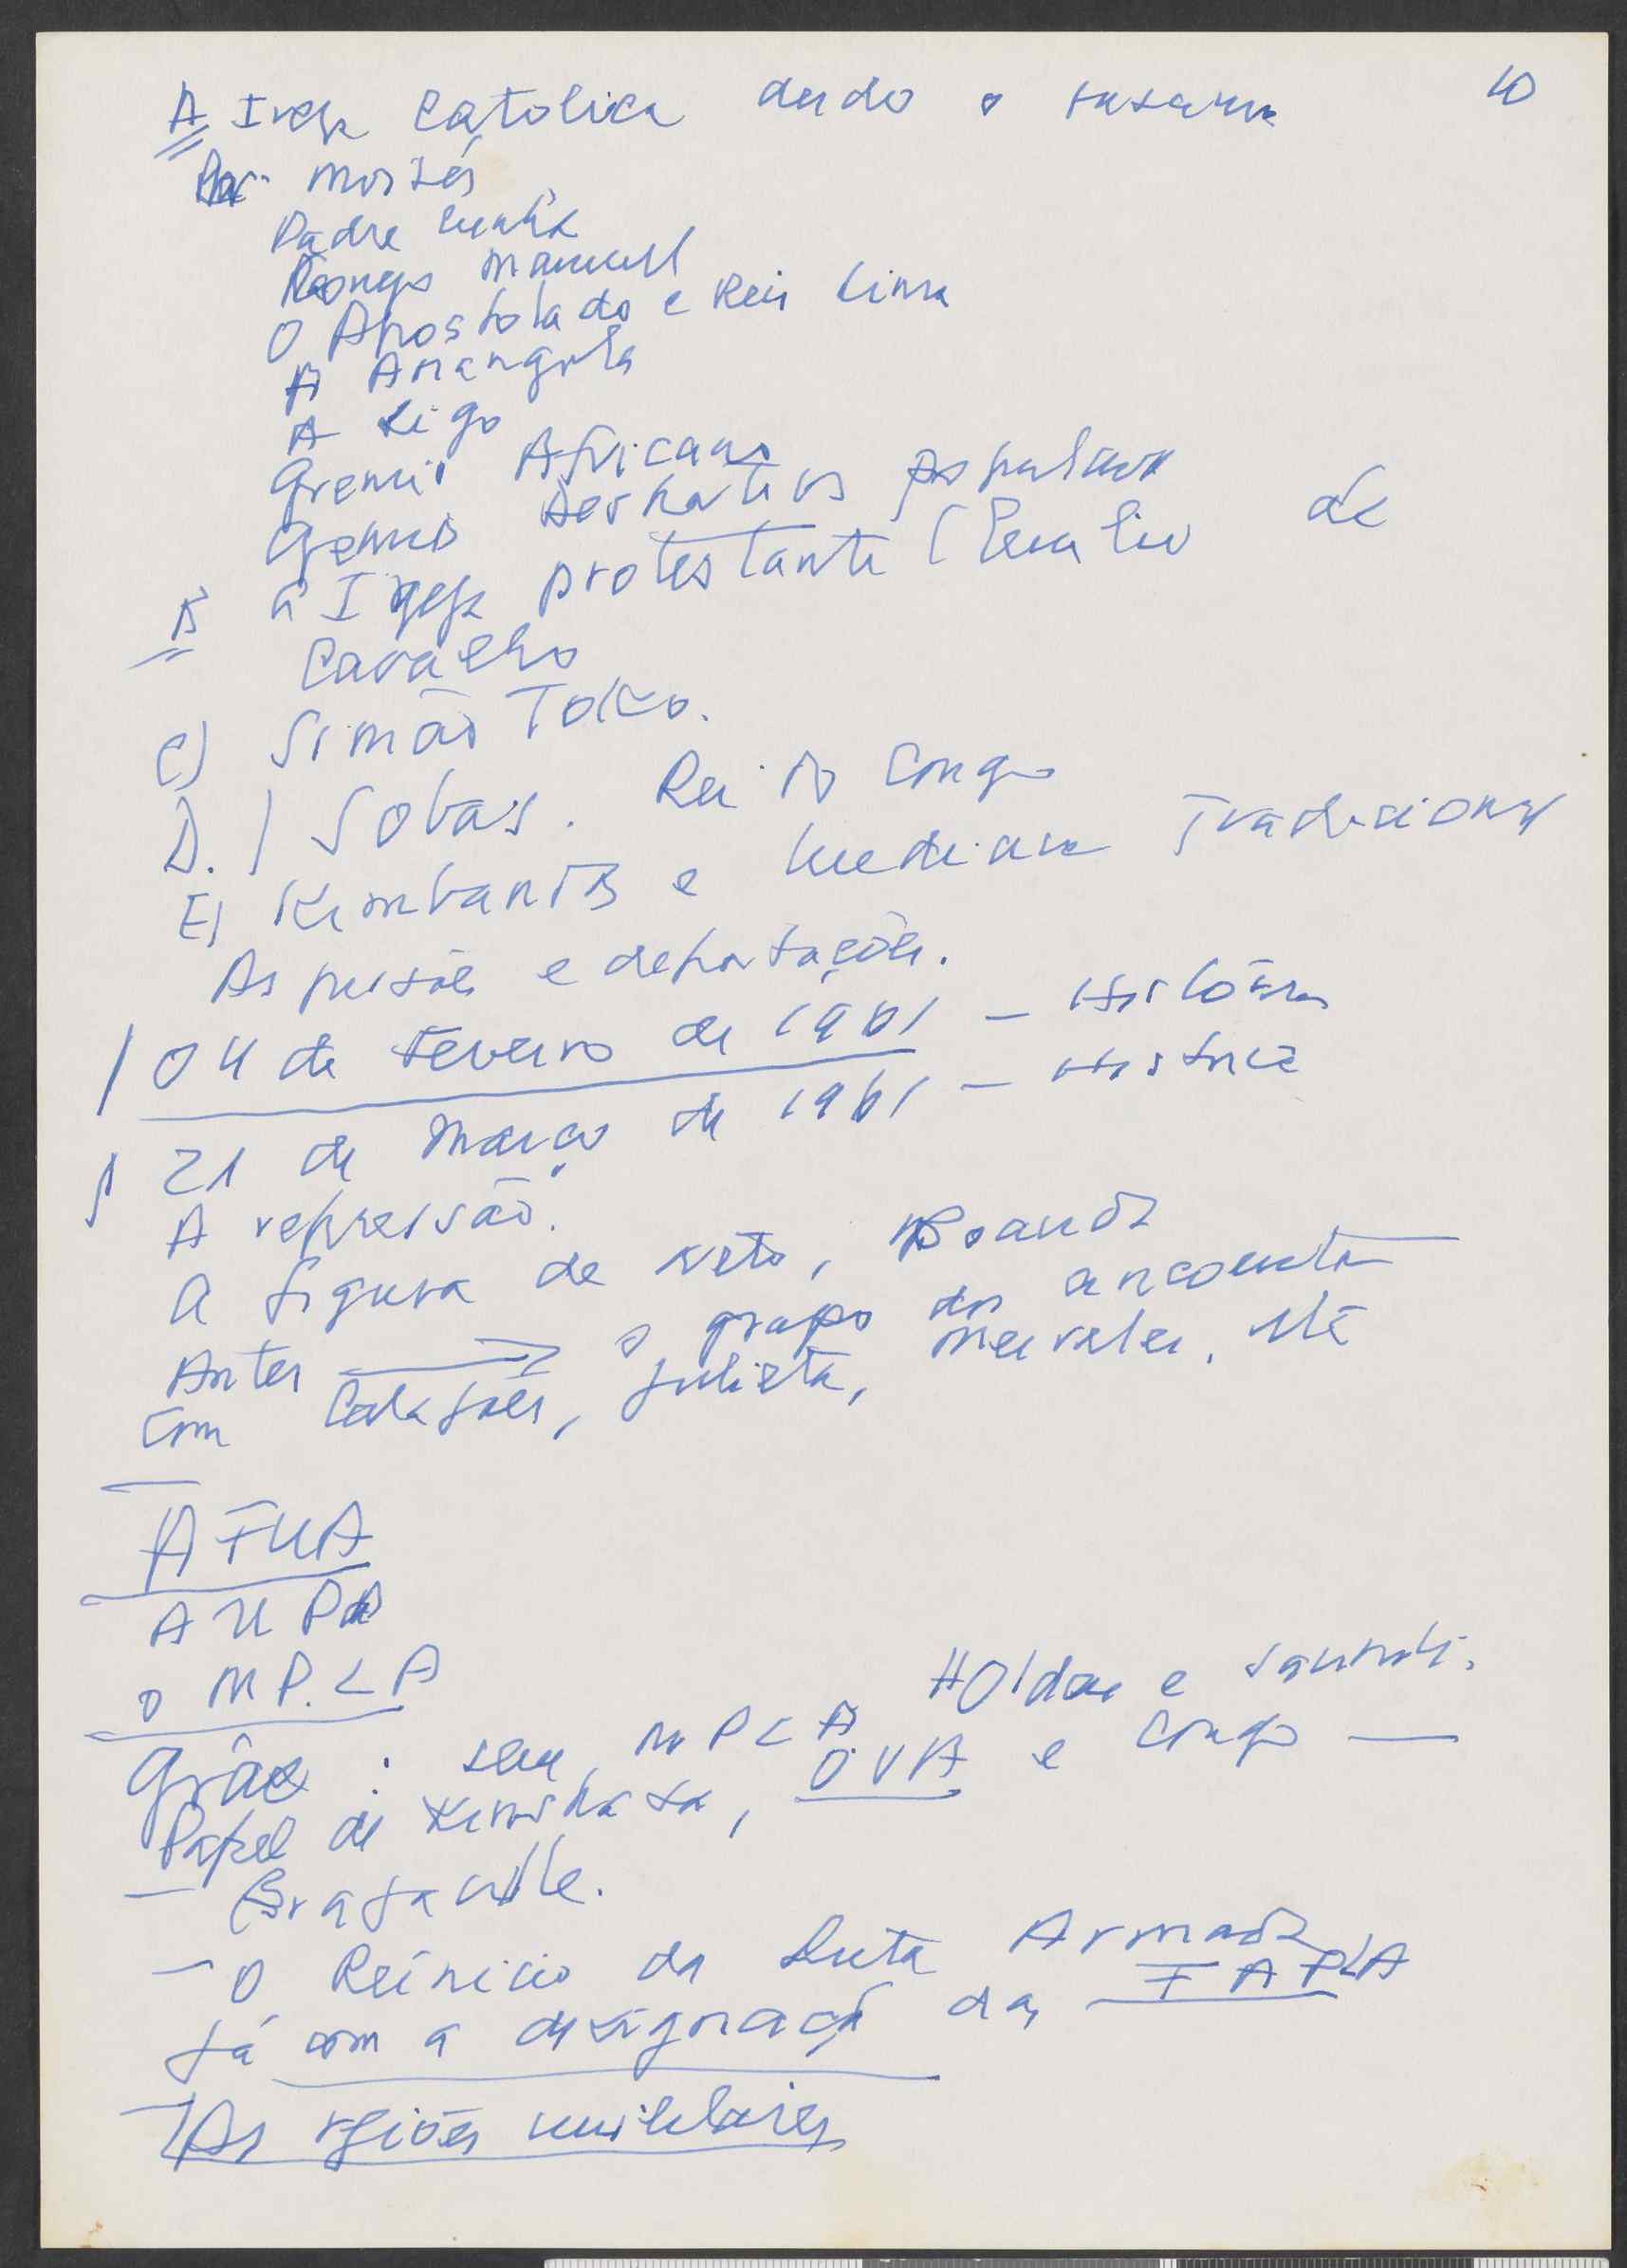 10
A Igreja Católica dando o
Moisés
Padre Cunha
Manuel
O Apostolado e Reis Lima
A Anangola
A Liga
Gremio Africano
Desportivos populares
B a Igreja protestante (Emilio de
Carvalho
C) Simão Toko.
D. / Sobas. Rei do Congo
E) Kimbandas e medicina Tradicional
As prisões e deportações.
04 de Fevereiro de 1961 – História
21 de Março de 1961 – Historia
A repressão.
A figura de Neto, Boavida
Antes o grupo dos ancoreta
Com Calazães, Julieta, Meireles,
A FUA
A UPA
O M P. L A
Holden e Savimbi.
Grãe : sem MPLA
Papel de Kinshasa, O.U.A e Congo —
— Brazaville.
— O Reínicio da Luta Armada
Já com a designação das FAPLA
— As regiões militares